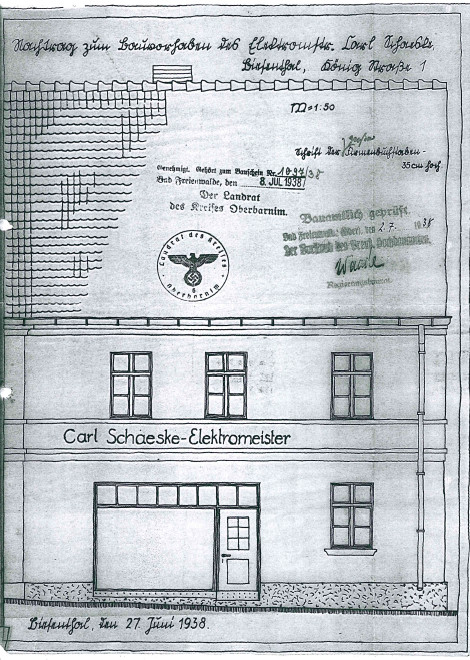 Nachtrag zum Bauvorhaben des Elektromstr. Carl Schaeske
Biesenthal, König Straße 1
M=1:50
Schrift der großen Firmenbuchstaben-
35cm hoch
Genehmigt. Gehört zum Bauschein Nr. 1097/38
Bad Freienwalde, den 8. JUL 1938
Der Landrat
des Kreises Oberbarnim.
Bauamtlich geprüft.
Bad Freienwalde (Oder), den 2.7. 1938
Der Vorstand des Preuß. Hochbauamtes.
Landrat des Kreises
6
Oberbarnim
Carl Schaeske-Elektromeister
Biesenthal, den 27. Juni 1938.